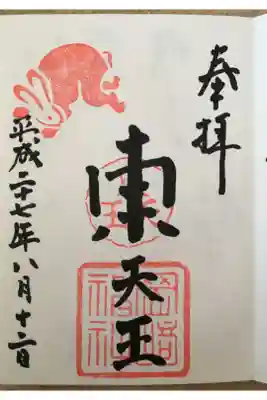 奉拝
東天王
岡﨑神社
平成二十七年八月十二日